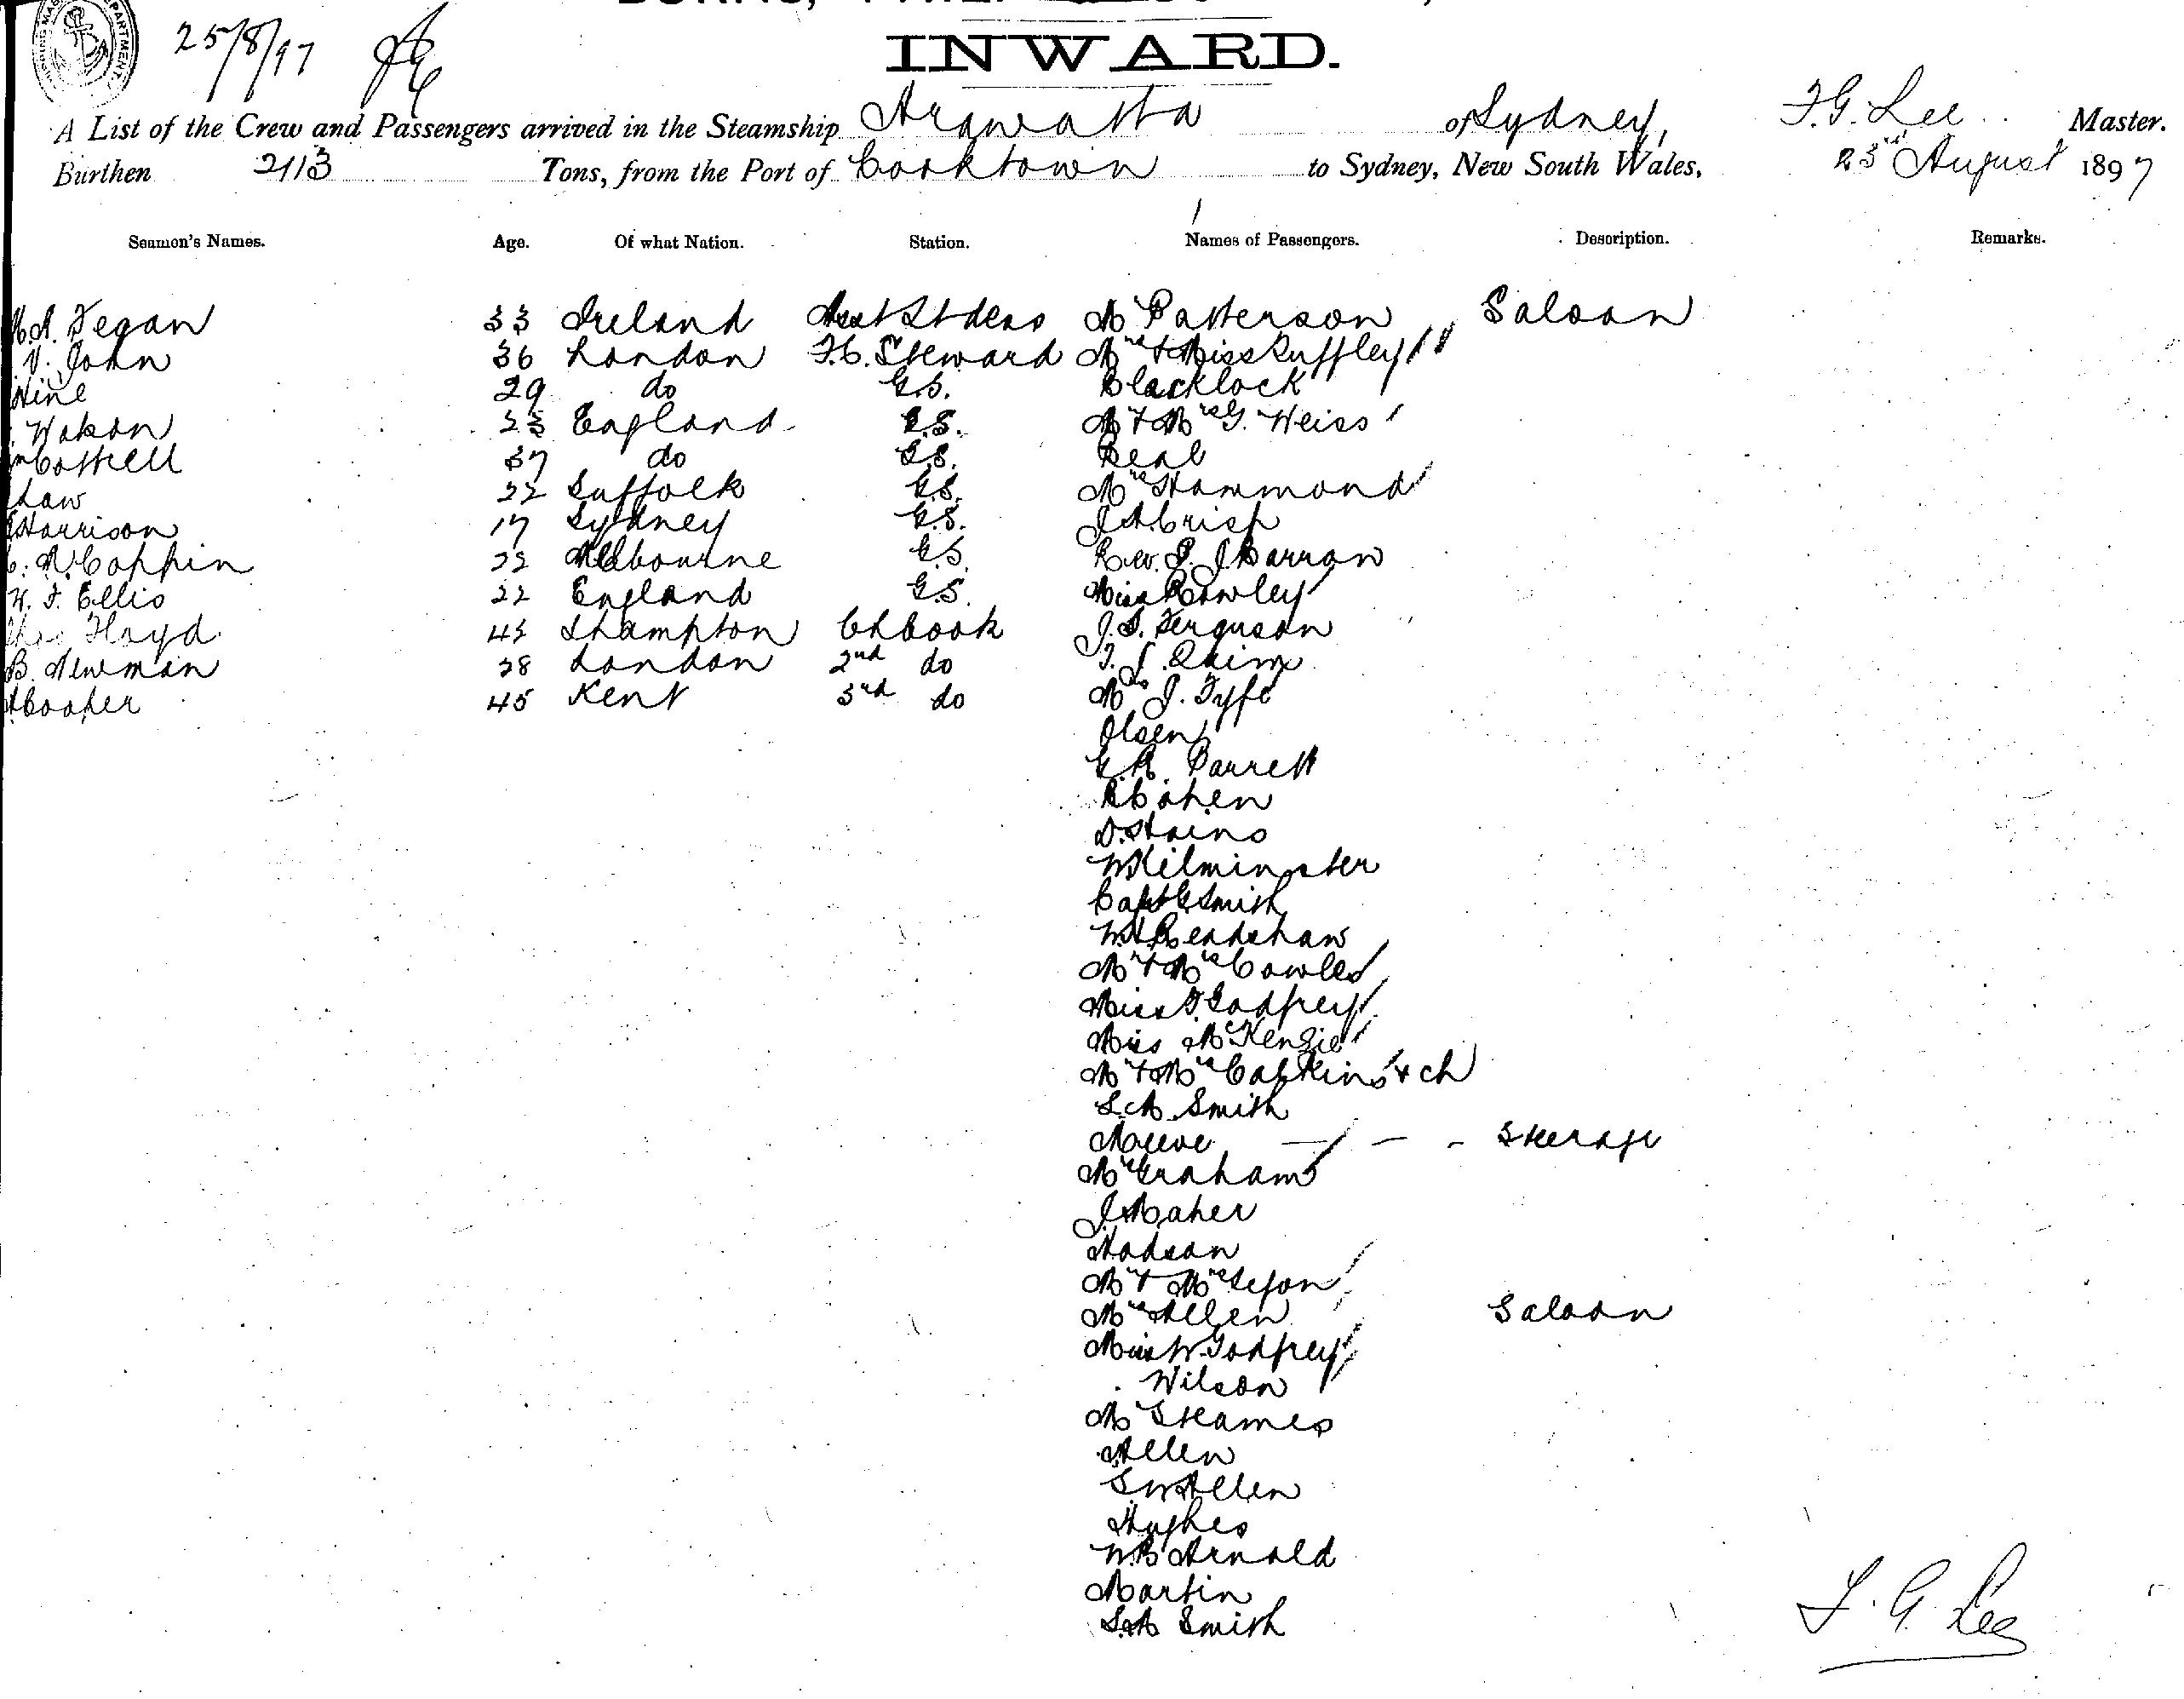 25/8/97
INWARD.
A List of the Crew and Passengers arrived in the Steamship Arawatta of Sydney, F. G. Lee Master.
Burthen 2113 Tons, from the Port of Cooktown to Sydney, New South Wales, 23rd August 1897
Seamen's Names. Age. Of what Nation. Station. Names of Passengers. Description. Remarks.
Fegan 33 Ireland Asst Stdess Mr Patterson Saloon
V. John 36 London F.C. Steward Mrs & Miss Ruffley
Hine 29 do G.S. Blacklock
33 England G.S. Mr & Mrs G. Weiss
Cottrell 37 do G.S. Beal
Law 22 Suffolk G.S. Mrs Hammond
Harrison 17 Sydney G.S. J A Crisp
Coppin 22 Melbourne G.S. Rev. J. Barron
W. F. Ellis 22 England G.S. Miss Rowley
Floyd 43 Shampton Ch Cook J. S. Ferguson
B. Newman 28 London 2nd do
Cooper 45 Kent 3rd do J. Fyfe
Olsen
G. R. Barrett
R Cohen
D. Stains
W Kilminster
Capt G Smith
W H Bradshaw
Mr & Mrs Cowled
Miss F. Godfrey
Miss McKenzie
Mr & Mrs & ch
S. A. Smith
Steerage
Mrs Graham
J Maher
Hodson
Mr & Mrs
Mrs Allen Saloon
Miss W Godfrey
Wilson
Mr Steames
Allen
S W Allen
Hughes
W. B Arnold
Martin
S. A Smith
F. G. Lee